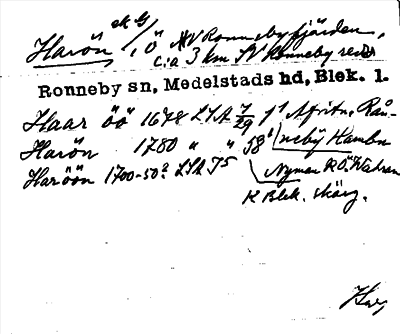 ek G
Harön, i ö NV Ronnebyfjärden,
c:a 3 km SV Ronneby redd
Ronneby sn, Medelstads hd, Blek. l.
Haar öö 1678 LSA 7/29 f1 Afritn. Rån-
Harön 1780 " " 58¹ neby Hambn
Haröön 1700-50? LSA 75 Nyman RÖ. Wahren
K Blek. skärg.